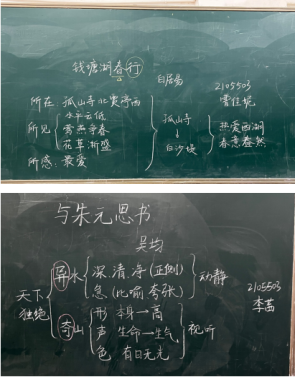 钱塘湖春行
白居易
2105503
所在：孤山寺北贾亭西
所见
水平云低
莺燕争春
花草渐盛
所感：最爱
孤山寺
白沙堤
热爱西湖
春意盎然
与朱元思书
吴均
天下独绝
异水
深 清,净(正侧)
急(比喻 夸张)
动静
奇山
形 本身→高
声 生命→生气
色 有日无光
视听
2105503
李茜